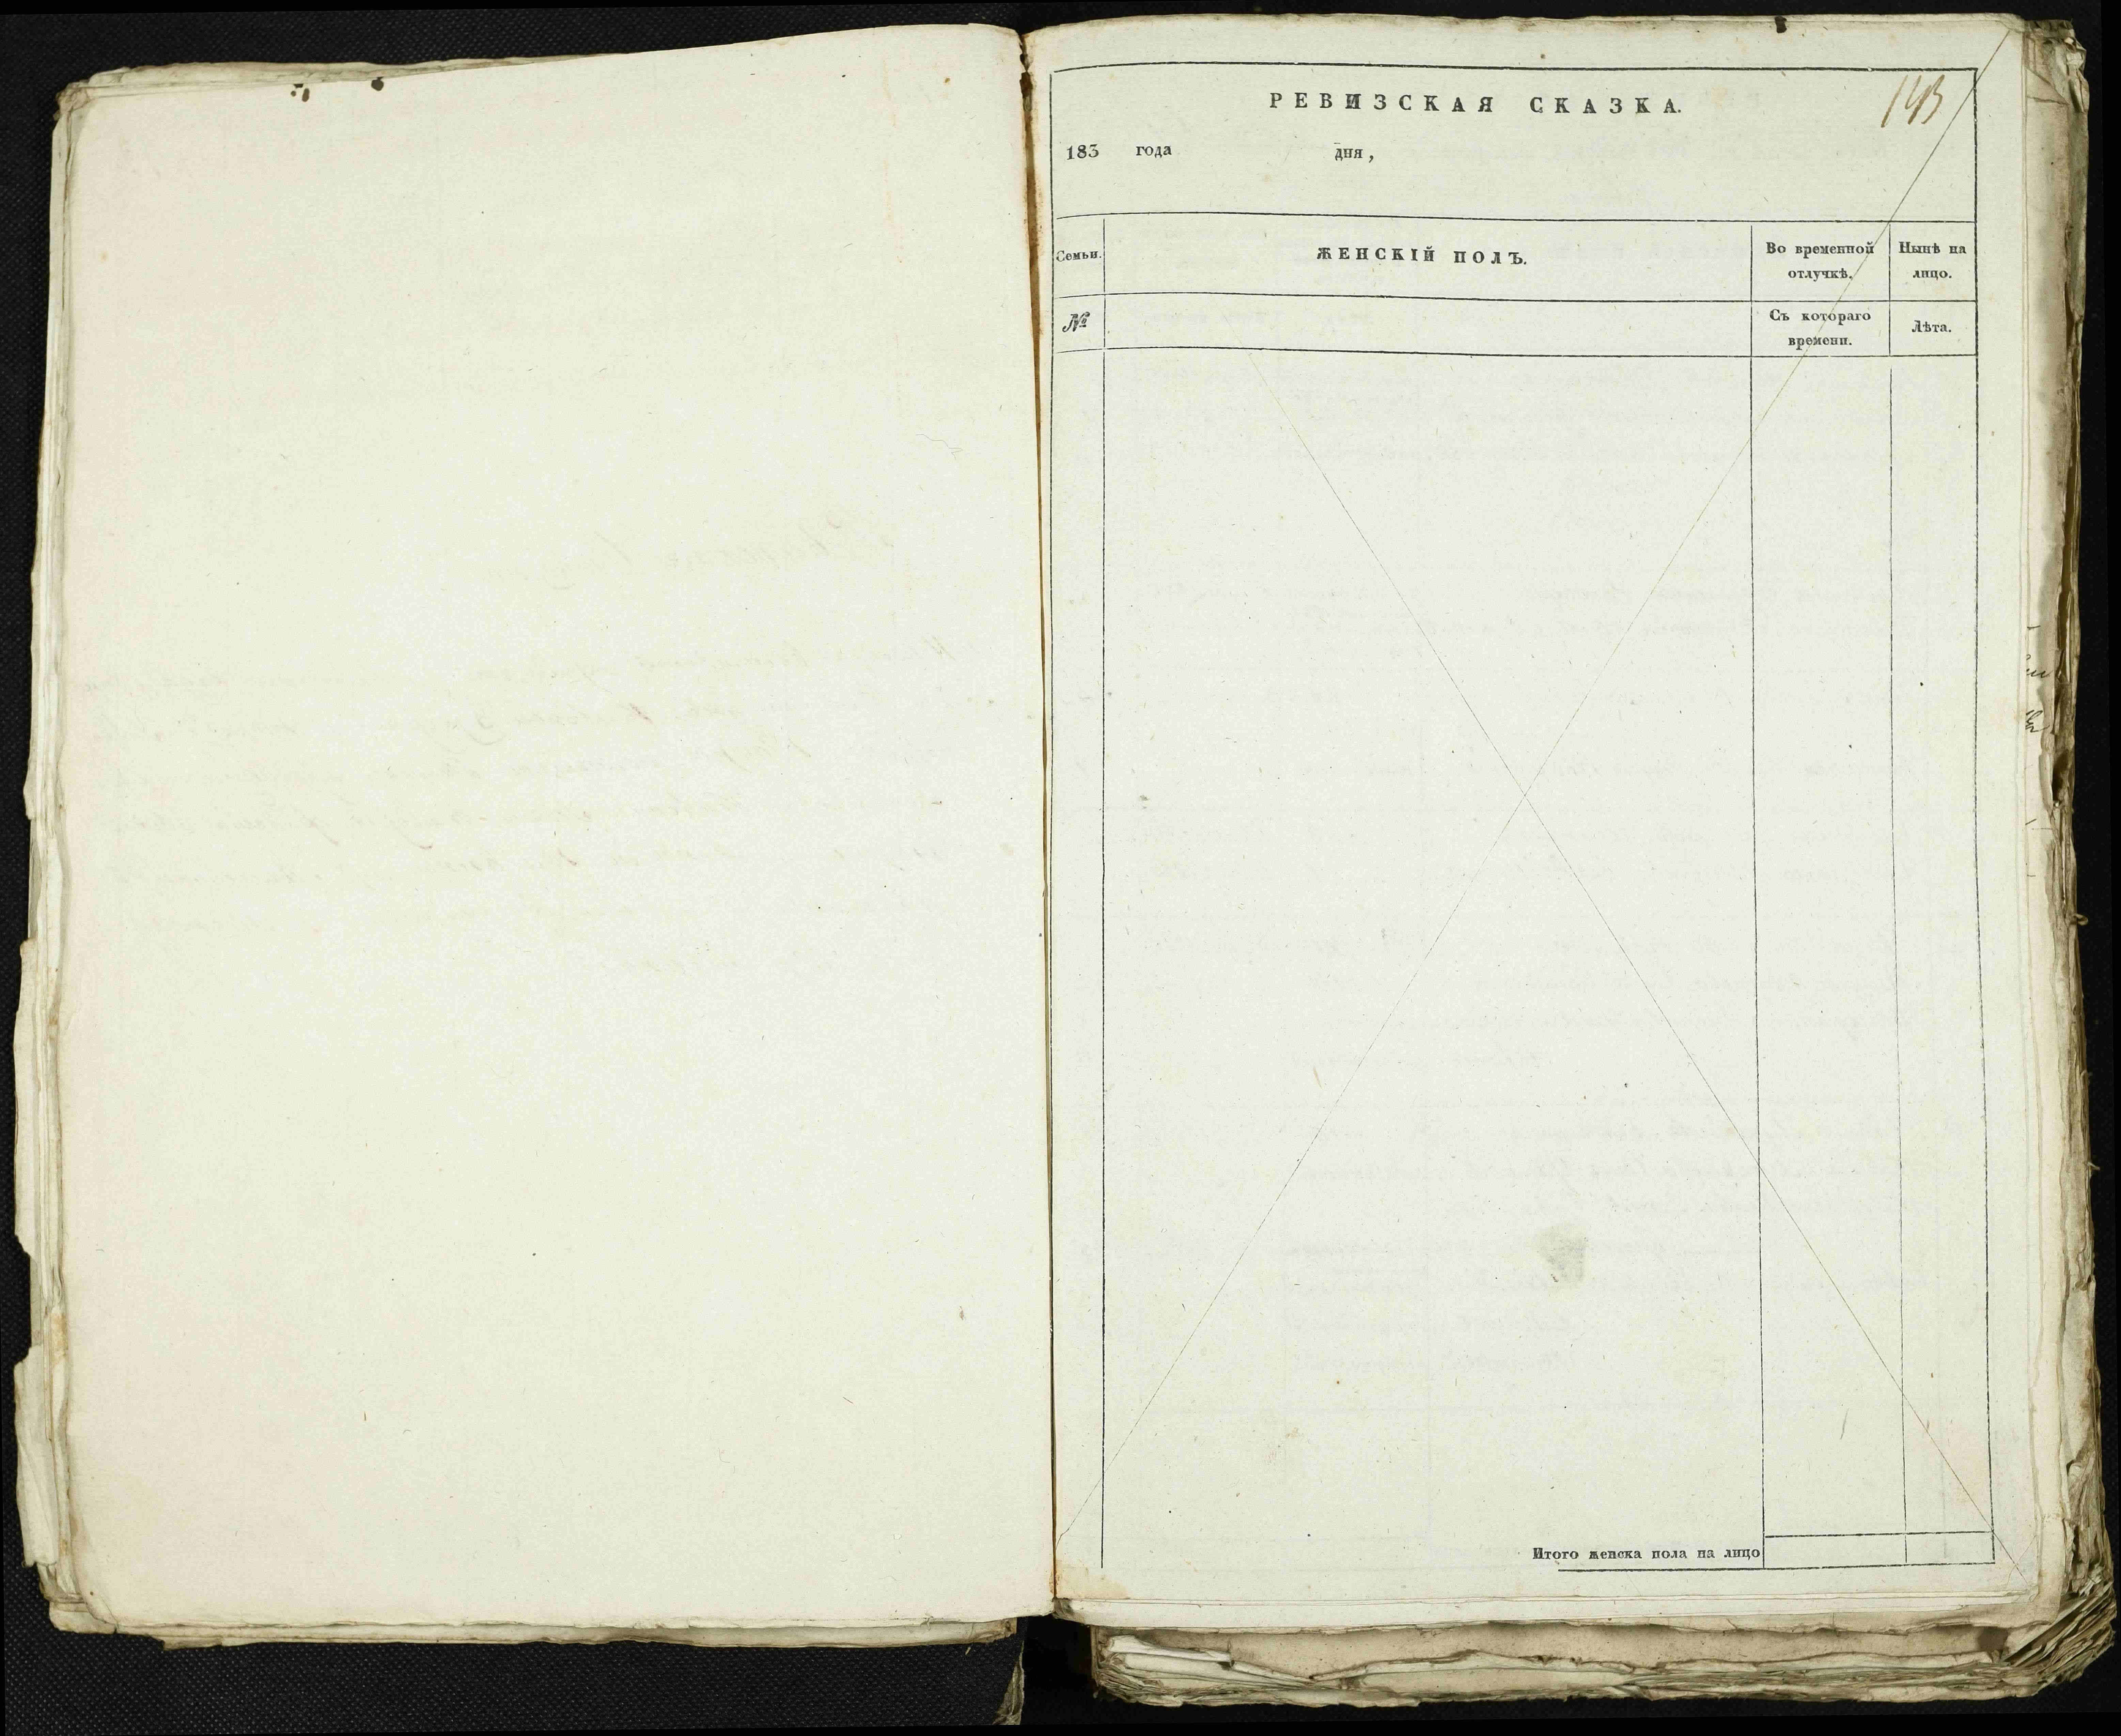 РЕВИЗСКАЯ СКАЗКА.
143
183 года дня,
Семьи.
ЖЕНСКІЙ ПОЛЪ.
Во временной
отлучкѣ.
Нынѣ на
лицо.
№
Съ котораго
времени.
Лѣта.
Итого женска пола на лицо